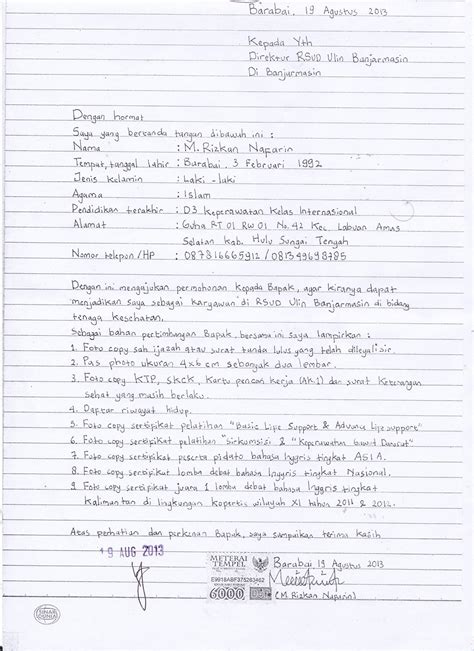 Barabai, 19 Agustus 2013
Kepada Yth
Direktur RSUD Ulin Banjarmasin
Di Banjarmasin
Dengan hormat
Saya yang bertanda tangan dibawah ini :
Nama : M. Rizkan Naparin
Tempat, tanggal lahir : Barabai, 3 Februari 1992
Jenis Kelamin : Laki - laki
Agama : Islam
Pendidikan terakhir : D3 Keperawatan Kelas Internasional
Alamat : Guha RT 01 RW 01 No. 42 Kec. Labuan Amas
Selatan kab. Hulu Sungai Tengah
Nomor telepon /HP : 087816665912 / 081349693785
Dengan ini mengajukan permohonan kepada Bapak, agar kiranya dapat
menjadikan saya sebagai karyawan di RSUD Ulin Banjarmasin di bidang
tenaga kesehatan.
Sebagai bahan pertimbangan Bapak, bersama ini saya lampirkan :
1. Foto copy sah ijazah atau surat tanda lulus yang telah dilegalisir.
2. Pas photo ukuran 4x6 cm sebanyak dua lembar.
3. Foto copy KTP, SKCK, Kartu pencari kerja (AK.1) dan surat Keterangan
sehat yang masih berlaku.
4. Daftar riwayat hidup.
5. Foto copy sertifikat pelatihan "Basic Life Support & Advance Life support"
6. Foto copy sertifikat pelatihan "Sirkumsisi & "Keperawatan Gawat Darurat"
7. Foto copy sertifikat peserta pidato bahasa Inggris tingkat ASIA.
8. Foto copy sertifikat lomba debat bahasa Inggris tingkat Nasional.
9. Foto copy sertifikat juara 1 lomba debat bahasa Inggris tingkat
kalimantan di lingkungan kopertis wilayah XI tahun 2011 & 2012.
Atas perhatian dan perkenan Bapak, saya sampaikan terima kasih
19 AUG 2013
METERAI
TEMPEL
Barabai, 19 Agustus 2013
6000
(M. Rizkan Naparin)
SINAR
DUNIA